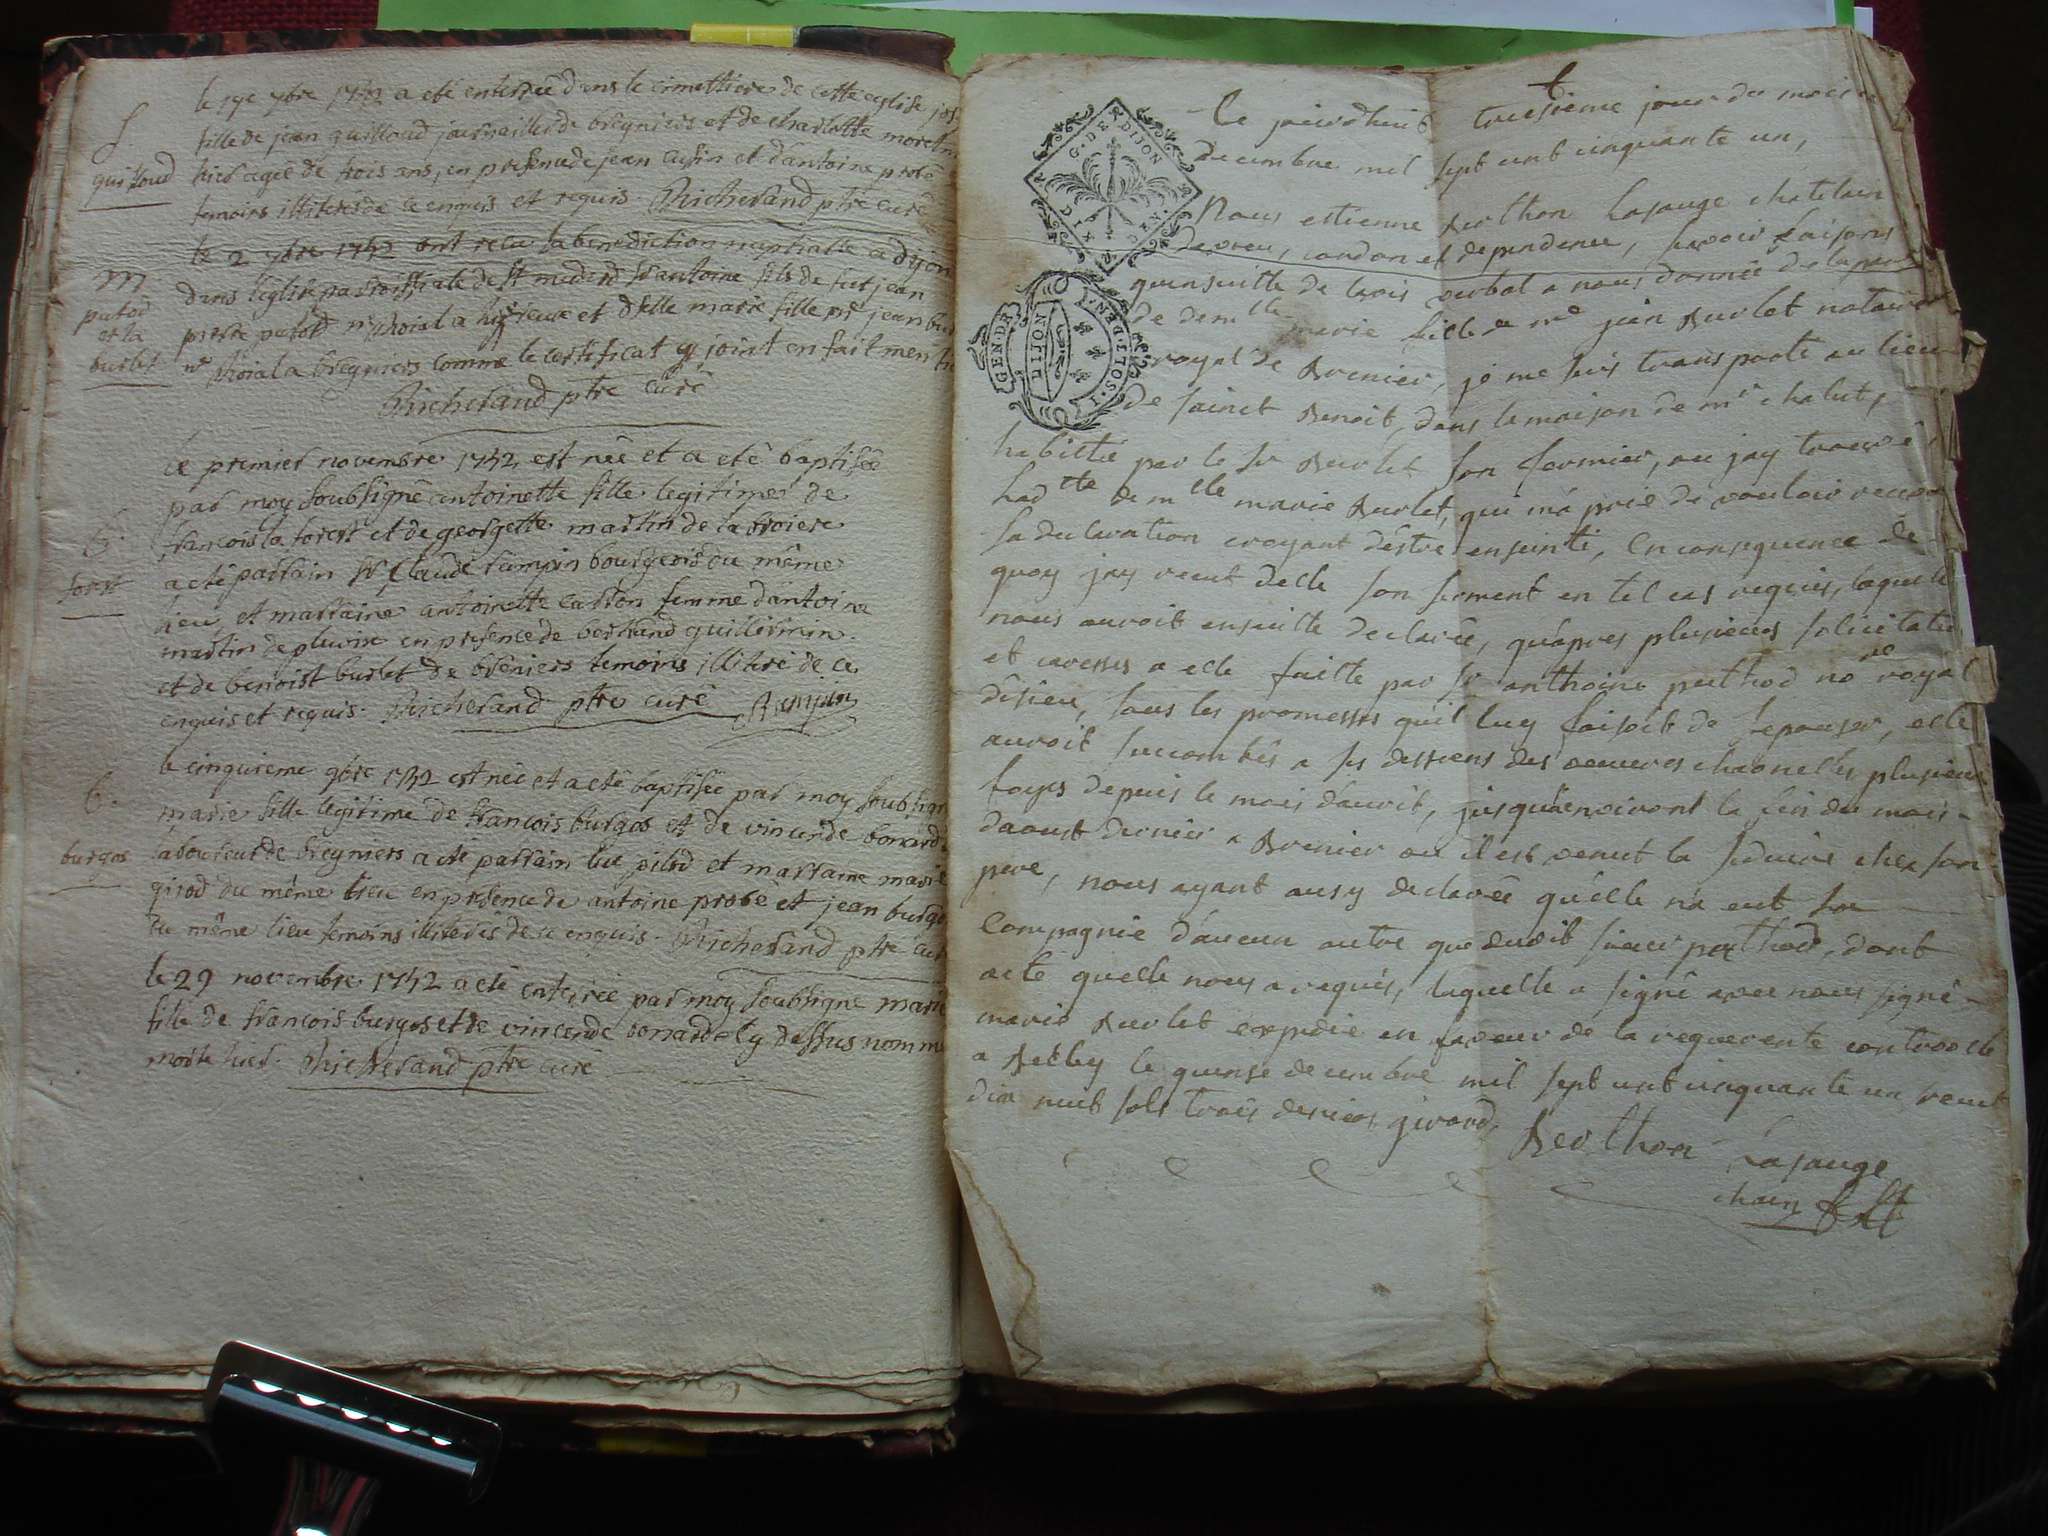 le 19e 7bre 1752 a eté enterrée dans le cimettiere de cette eglise jos
fille de jean guilloud journaillier de bregniers et de charlotte moret m
hier agée de trois ans, en presence de jean cusin et d'antoine probé
temoins illiterés de ce enquis et requis. Richerand ptre curé
S
guilloud
le 2 7bre 1752 ont reçu la benediction nuptialle a dijon
dans l'eglise paroissiale de st medard sr antoine fils de feu jean
pierre putod nre roial a et dlle marie fille de jean bur
nre roial a bregniers comme le certificat cy joint en fait mention
Richerand ptre curé
M
putod
et la
burlet
le premier novembre 1752 est née et a eté baptisée
par moy soubsigné antoinette fille legitime de
francois la forest et de georgette martin de la broiere
a eté parrain sr Claude rampin bourgeois du même
lieu et marraine antoinette carron femme d'antoine
martin de pluvise en presence de bertrand guillermin
et de benoist burlet de breniers temoins illitiré de ce
enquis et requis. Richerand ptre curé Rampin
B.
forest
le cinquieme 9bre 1752 est née et a eté baptisée par moy soubsigné
marie fille legitime de francois burgos et de vincende bonard
laboureur de bregniers a eté parrain luc pilod et marraine marie
girod du même lieu en presence de antoine probé et jean burgos
du même lieu temoins illiterés de ce enquis. Richerand ptre curé
B.
burgos
le 29 novembre 1752 a eté enterrée par moy soubsigné marie
fille de francois burgos et de vincende bonard cy dessus nommé
morte hier. Richerand ptre curé
G. DE DIJON
GEN. DE DIJON
Ce jourdhuit treisieme jour du mois de
decembre mil sept cent cinquante un,
Nous estienne Berthon Lasauge chatelain
de veu, condon et dependence, sçavoir faisons
quensuitte de lavis verbal a nous donnée de la part
de demlle marie fille de me jean Burlet notaire
royal de Brenier, je me suis transporté au lieu
de sainct Benoit, dans la maison de mr chalut,
habittée par le sr Burlet son fermier, ou jay trouvée
ladtte demlle marie Burlet, qui ma prié de vouloir recevoir
sa declaration croyant d'éstre enseinte, En consequence de
quoy jay receut delle son serment en tel cas requis, laquelle
nous auroit ensuitte declarée, quapres plusieurs solicitations
et caresses a elle faitte par sr anthoine puthod nore royal
disieu, sous les promesses quil luy faisoit de lepouser, elle
auroit succombés a ses dessiens des oeuvres charnelles plusieurs
foyes depuis le mois d'avril, jusqu'aenviront la fin du mois
daoust dernier a Brenier ou il est venut la seduire chez son
pere, nous ayant ausy declarée qu'elle na eut sa
Compagnie d'aucun autre que dudit sieur puthod, dont
acte quelle nous a requis, laquelle a signé avec nous signé
marie Burlet expedié en faveur de la requerente controolle
a Belley le quinse decembre mil sept cent cinquante un receut
dix neuf sols trois deniers girard.
Berthon Lasauge